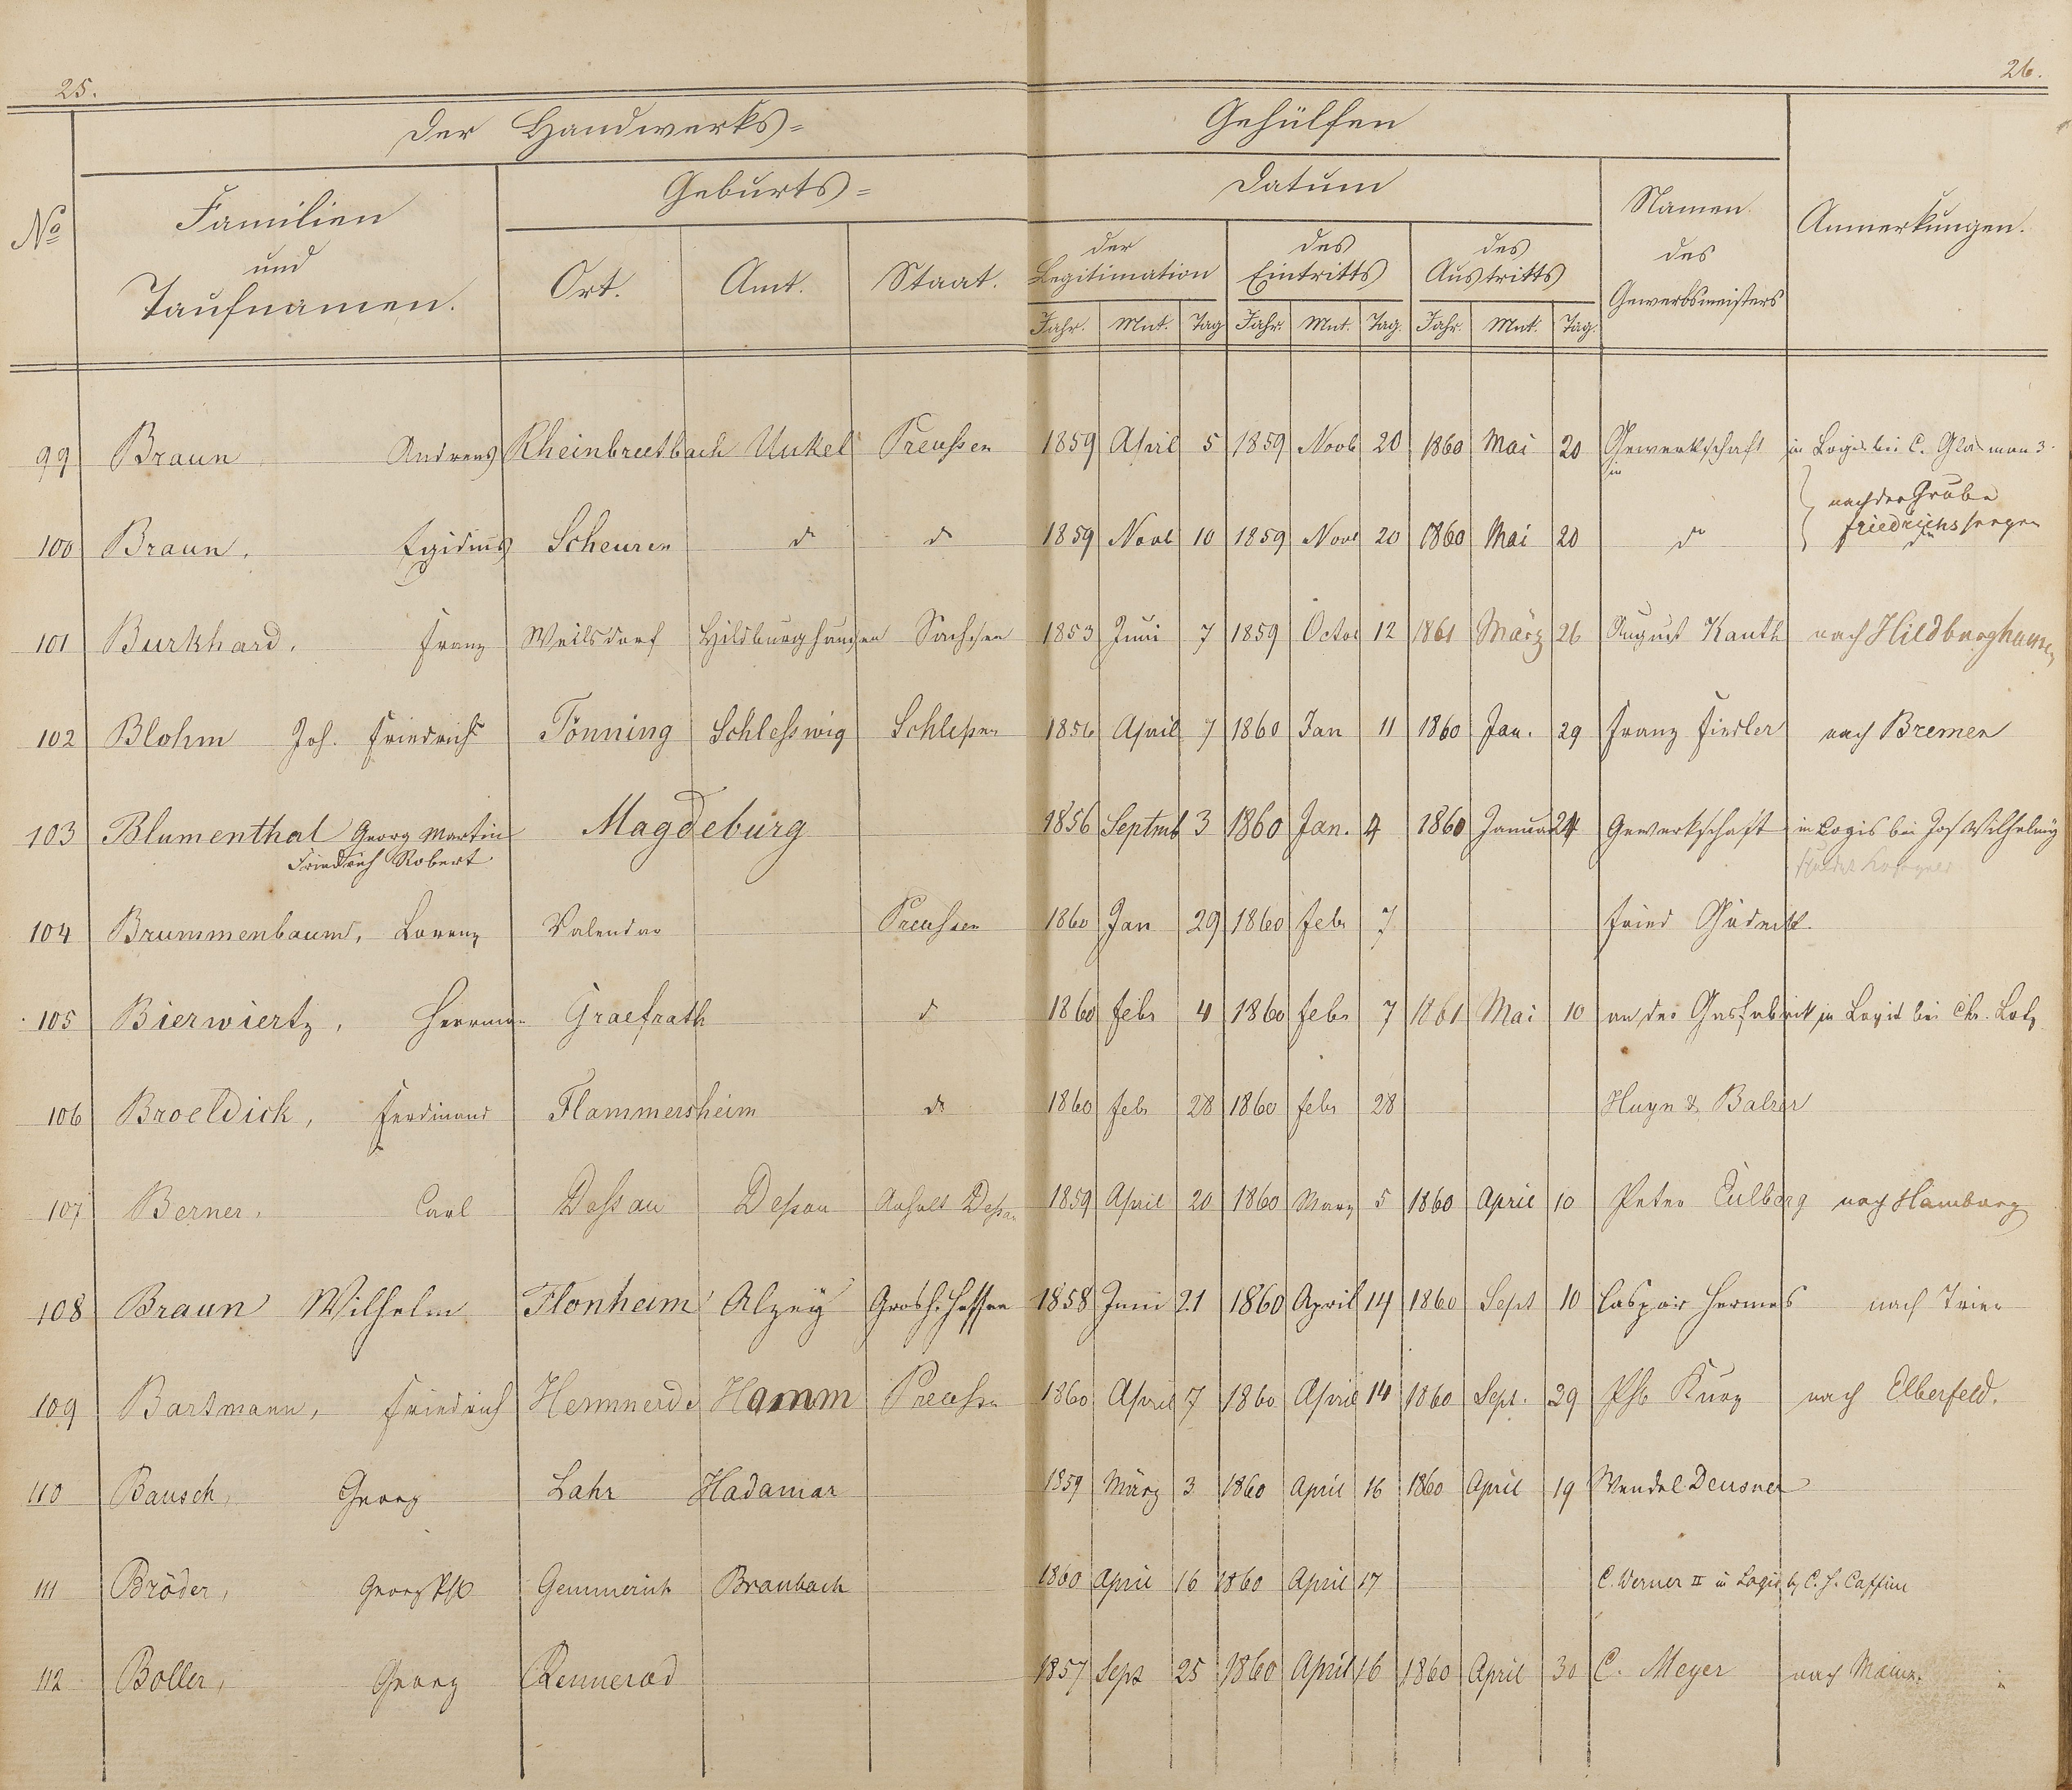 25.
26.
Der Handwerks=
Gehülfen
No
Familien
und
Taufnamen.
Geburts=
Ort.
Amt.
Staat.
Datum
der
Legitimation
des
Eintritts
des
Austritts
Jahr. Mnt. Tag Jahr. Mnt. Tag. Jahr. Mnt. Tag.
Namen
des
Gewerbsmeisters
Anmerkungen.
99 Braun Andreas Rheinbreitbach Unkel Preußen 1859 April 5 1859 Novb 20 1860 Mai 20 Gewerkschaft in Logis bei C. 
nach der Grube
Friedrichssegen
100 Braun, Egidius Scheuren do do 1859 Novb 10 1859 Novb 20 1860 Mai 20 do do
101 Burkhard, Franz Weilsdorf Hildburghausen Sachsen 1853 Juni 7 1859 Octob 12 1861 März 26 August Kauth nach Hildburghausen
102 Blohm Joh. Friedrich Tönning Schleßwig 1856 April 7 1860 Jan 11 1860 Jan. 29 Franz Fiedler nach Bremen
103 Blumenthal Georg Martin Magdeburg 1856 Septmb 3 1860 Jan. 4 1860 Januar 24 Gewerkschaft in Logis bei Jos Wilhelmy
Friedrich Robert
104 Brummenbaum, Lorenz Valendar Preußen 1860 Jan 29 1860 Febr 7 Fried
105 Bierwiertz, Herrman Graefrath do 1860 Febr 4 1860 Febr 7 1861 Mai 10 an der Gasfabrik in Logis bei Chr. Lotz
106 Broeldick, Ferdinand Flammersheim do 1860 Febr 28 1860 Febr 28 Huyn & Balzer
107 Berner, Carl Deßau Deßau Anhalt Deßau 1859 April 20 1860 März 5 1860 April 10 Peter Eulberg nach Hamburg
108 Braun Wilhelm Flonheim Alzey Grosh. Hessen 1858 Juni 21 1860 April 14 1860 Sept 10 Caspar Hermes nach Trier
109 Bartmann, Friedrich Hemmerde Hamm Preußen 1860 April 7 1860 April 14 1860 Sept. 29 Phl Kurz nach Elberfeld.
110 Bausch, Georg Lahr Hadamar 1859 März 3 1860 April 16 1860 April 19 Wendel Deusner
111 Bröder, Georg Phl Gemmerich Braubach 1860 April 16 1860 April 17 C. Werner II in Logis b. C. H. Caffine
112 Boller, Georg Rennerod 1857 Sept 25 1860 April 16 1860 April 30 C. Meyer nach Mainz.